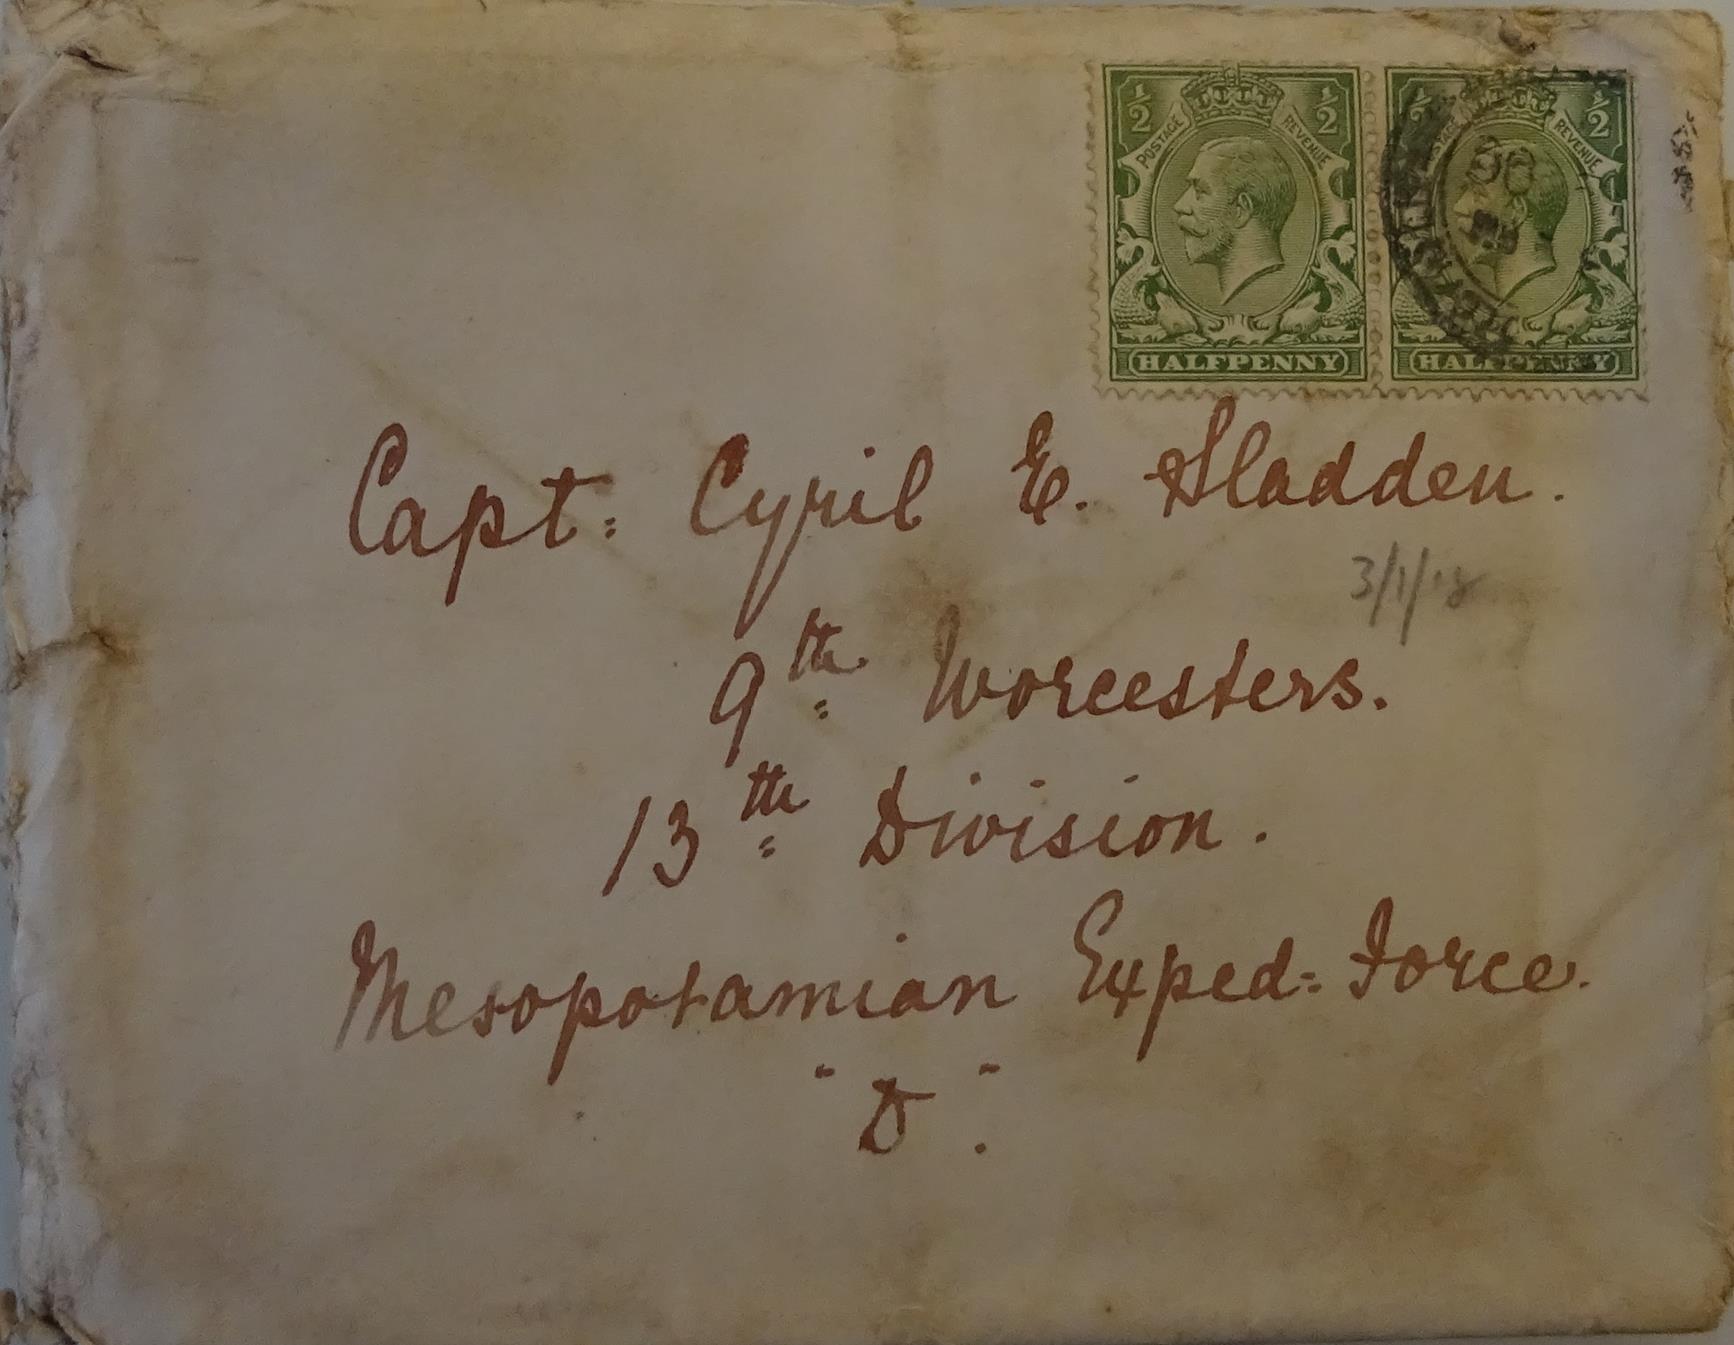 ½ POSTAGE REVENUE ½
HALFPENNY
½ REVENUE ½
HALFPENNY
Capt: Cyril E. Sladden.
3/1/18
9th Worcesters.
13th Division.
Mesopotamian Exped: Force.
"D".